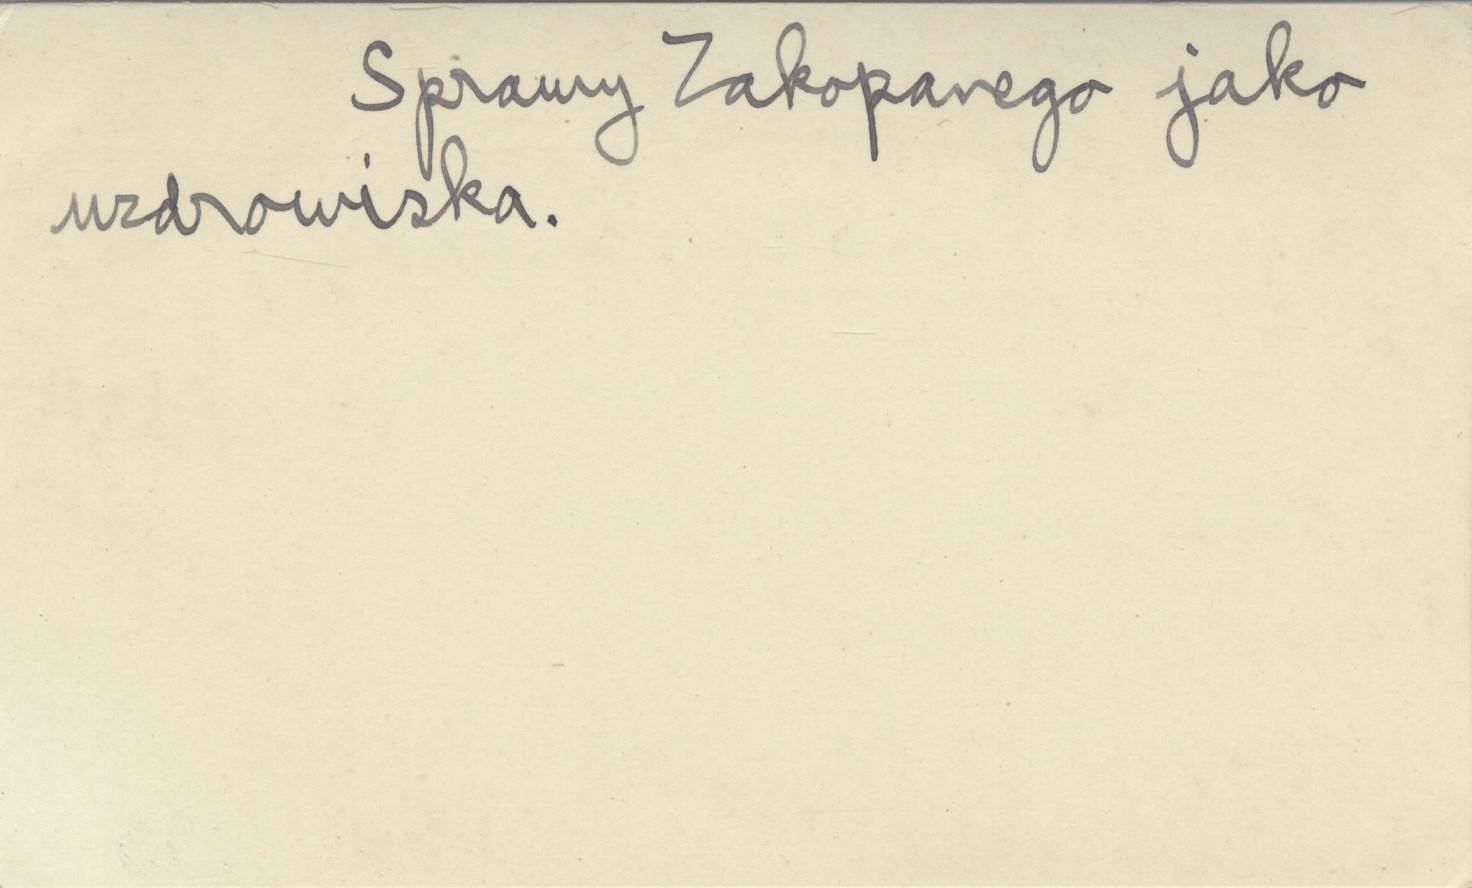 Sprawy Zakopanego jako
uzdrowiska.